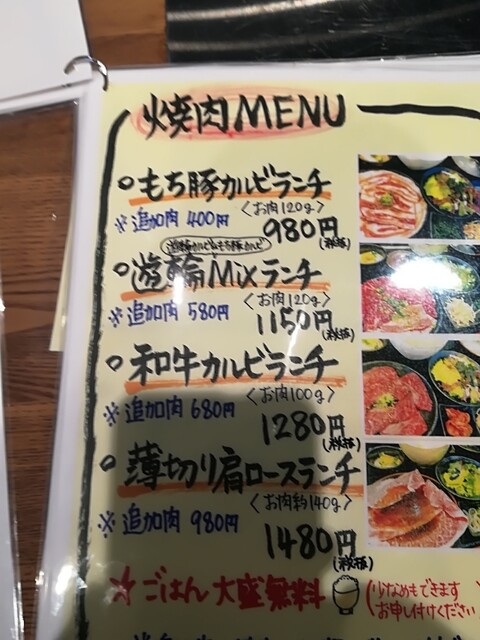 焼肉MENU
もち豚カルビランチ
<お肉120g>
※追加肉 400円
980円(税抜)
遊輪カルビ&もち豚カルビ
遊輪Mixランチ
<お肉120g>
※追加肉 580円
1150円(税抜)
和牛カルビランチ
<お肉100g>
※追加肉 680円
1280円(税抜)
薄切り肩ロースランチ
<お肉約140g>
※追加肉 980円
1480円(税抜)
☆ごはん 大盛無料
(少なめもできます
お申し付けください)